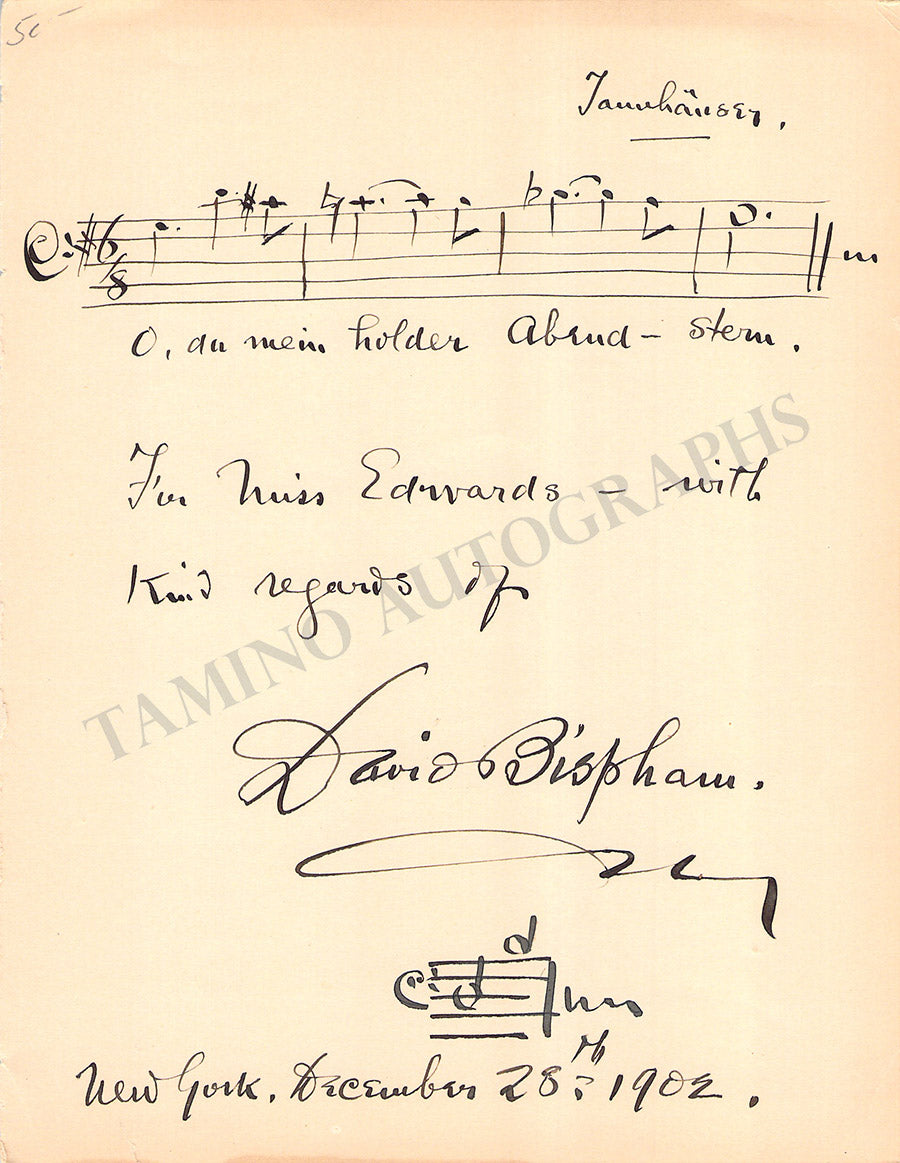 50
Tannhäuser.
6/8
O, du mein holder Abend-stern.
For Miss Edwards – with
kind regards of
David Bispham.
New York, December 28th 1902.
TAMINO AUTOGRAPHS